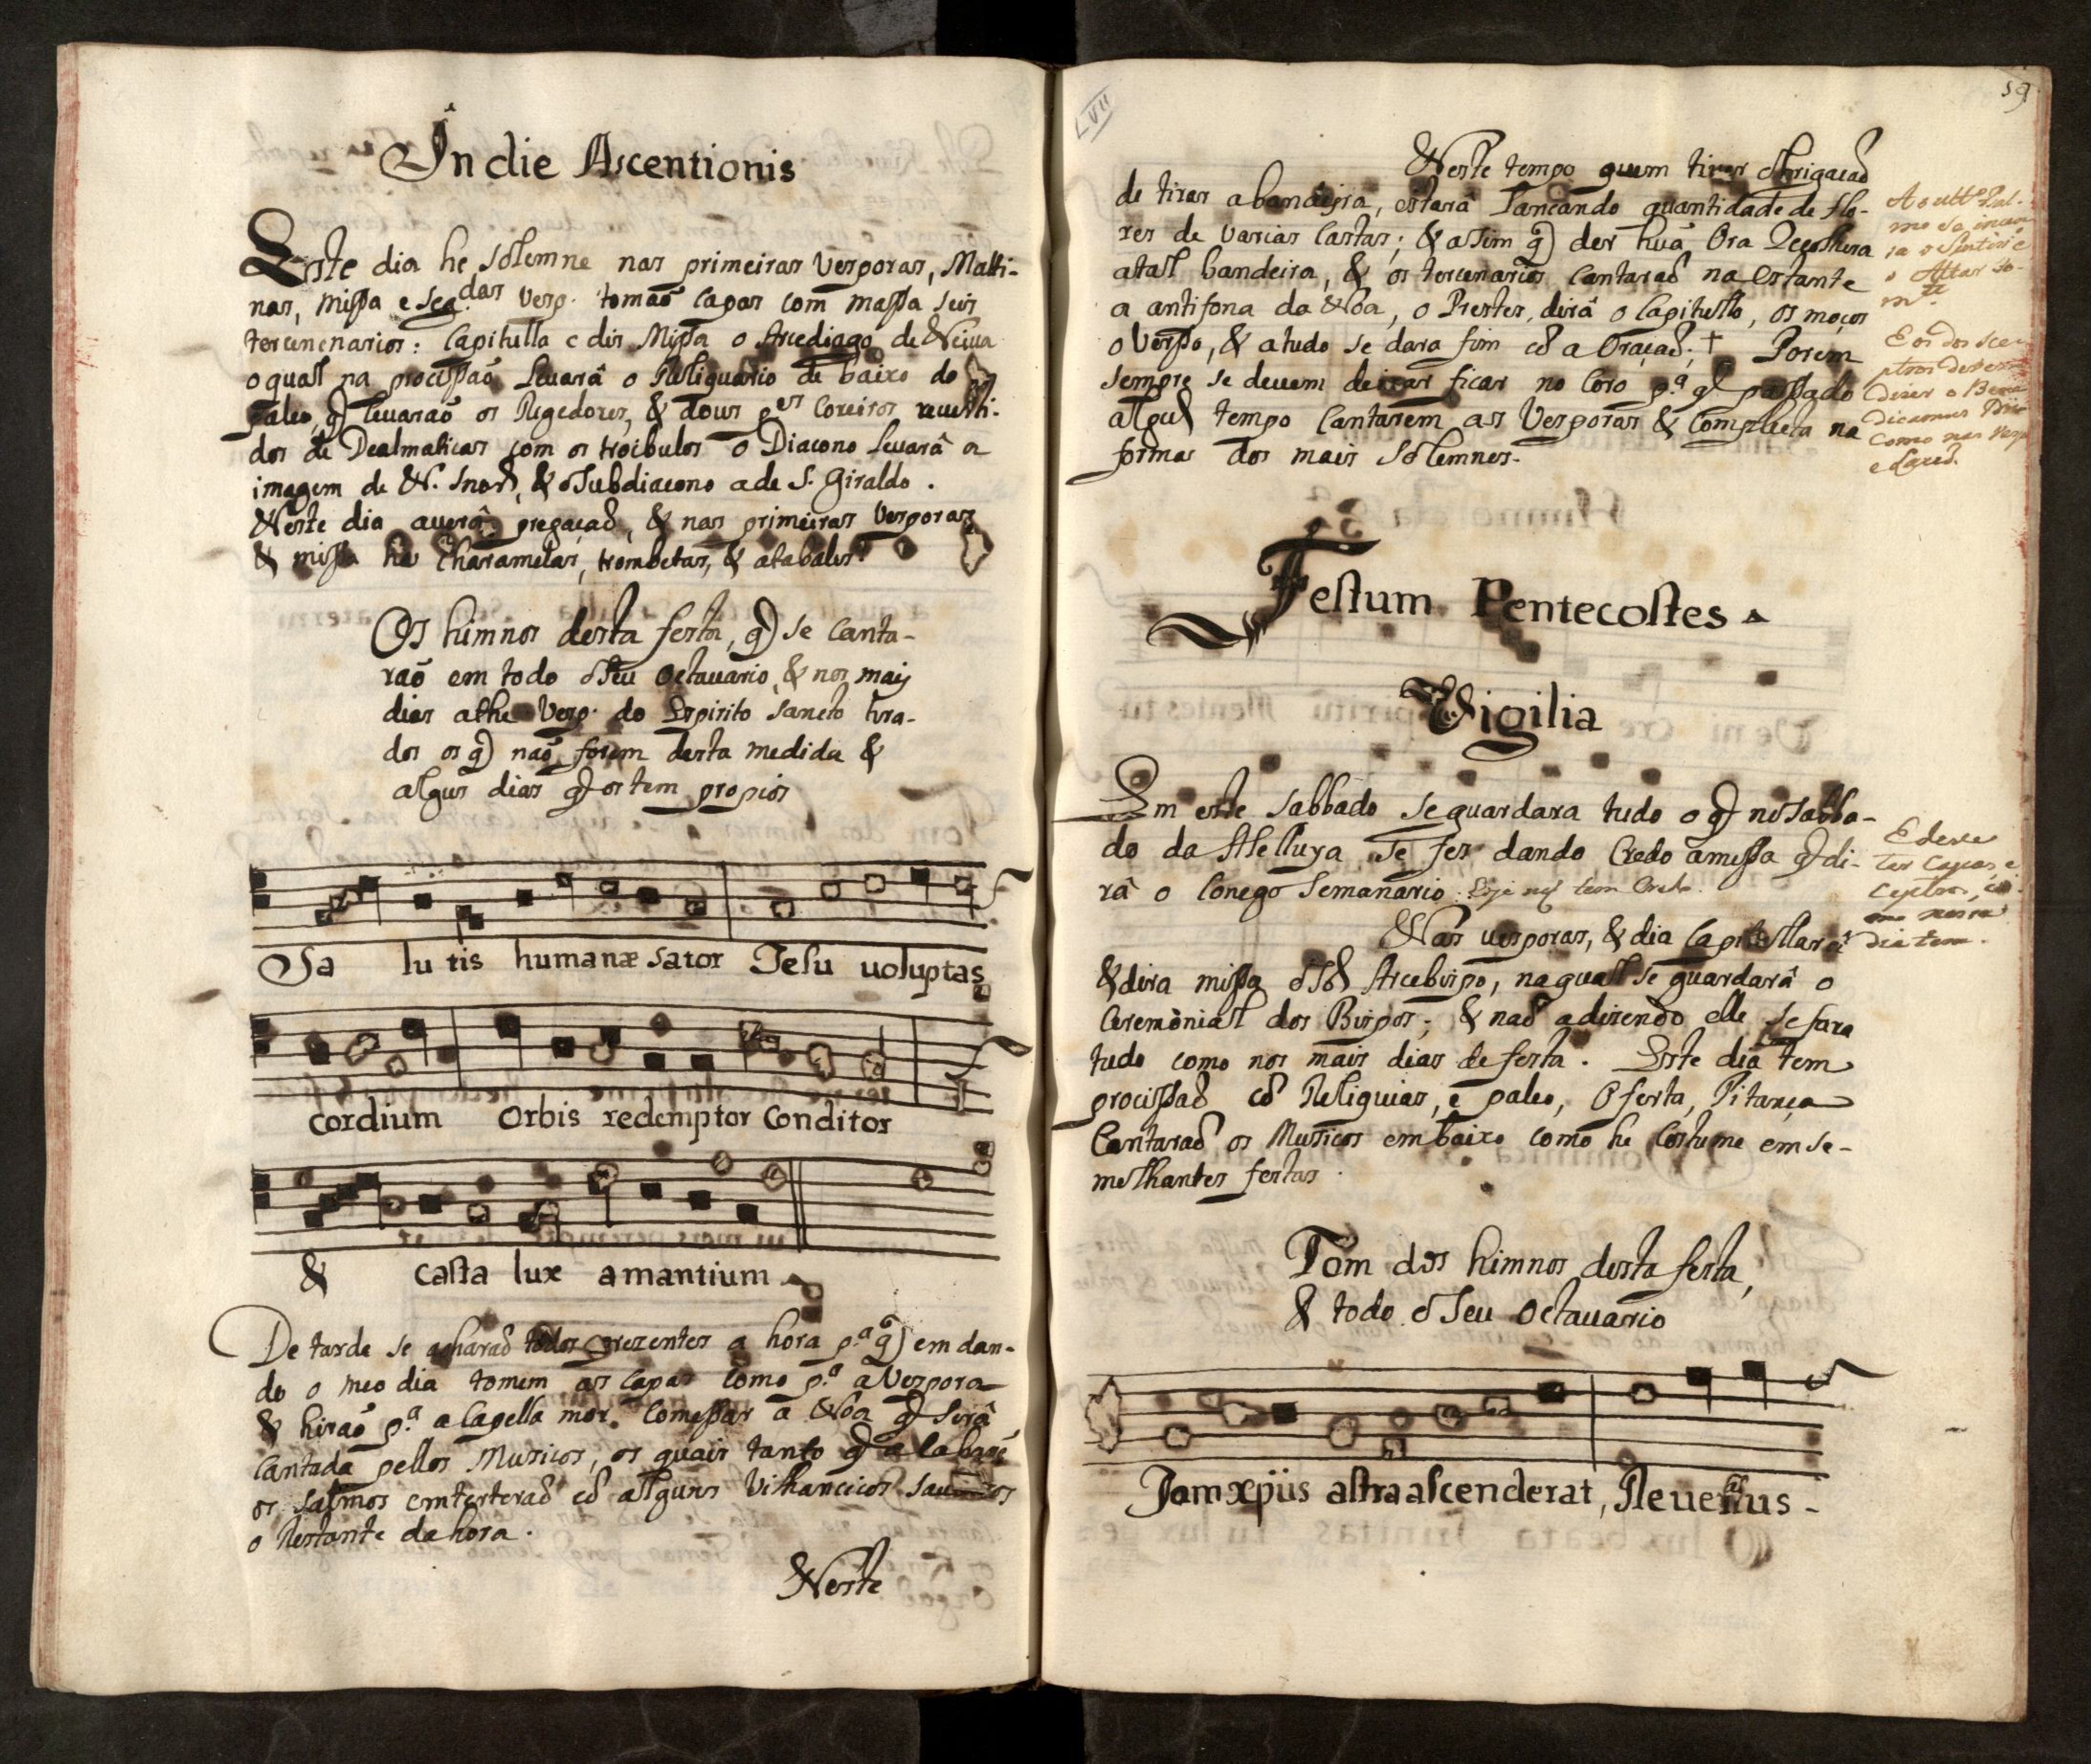 In die Ascentionis
Este dia he solemne nas primeiras Vesporas, Matti-
nas, missa e seg.das vesp. tomão Capas com massa seis
tercenarios: Capitulla e dis Missa o Arcediago de Neiva
o qual na procissão levarâ o Reliquario de baixo do
paleo, q̃ levarão os Regedores, & dous p.es Coreiros revesti-
dos de Dealmaticas com os troibulos o Diacono levarâ a
imagem de N. Snõr, & o Subdiacono a de S. Giraldo.
Neste dia averâ pregação, & nas primeiras Vesporas
& missa ha Charamelas, trombetas, & atabales.
Os himnos desta festa, q̃ se canta-
rão em todo o seu octavario, & nos mais
dias athe vesp. do Espirito sancto tira-
dos os q̃ não forem desta medida &
algus dias q̃ os tem propios
Sa lu tis humanæ sator Jesu voluptas
cordium orbis redemptor Conditor
& casta lux amantium
De tarde se acharão todos prezentes a hora p.ª q̃ em dan-
do o meo dia tomem as capas como p.ª a Vespora
& hirão p.ª a Capella mor. Comessar a Noa q̃ serâ
Cantada pellos Musicos, os quais tanto q̃ acabarẽ
os salmos emterterão cõ alguns Vilhancicos
o Restante da hora.
Neste
59
LVII
Neste tempo quem tiver obrigação
de tirar a bandeira, estarâ lançando quantidade de flo-
res de varias castas; & assim q̃ der huã Ora Recolhera
a tal bandeira, & os tercenarios cantarão na estante
a antifona da Noa, o Prestes, dirâ o Capitullo, os moços
o Verso, & a tudo se dara fim cõ a Oração; † Porem
sempre se devem deixar ficar no Coro p.ª q̃ passado
algũ tempo Cantarem as Vesporas & Completa na
forma dos mais solemnes.
A o ult.º Psal-
mo se incen-
sa
o Altar so-
m.te
E os dos sce-
ptros devem
dizer o Bene
dicamus Dño
como nas Vesp
Festum Pentecostes
Vigilia
Em este sabbado se guardara tudo o q̃ no sabba-
do da Alelluya se fes dando Credo a missa q̃ di-
râ o Conego Semanario. Hoje não tem Credo.
E deve
ter capas, e
ceptros, co-
mo neste
dia tem.
Nas vesporas, & dia Capitullarâ
& dira missa o Sõr Arcebispo, na qual se guardarâ o
Ceremonial dos Bispos; & não a dizendo elle se fara
tudo como nos mais dias de festa. Este dia tem
procissão cõ Reliquias, e paleo, Oferta, Pitança
Cantarão os Musicos em baixo como he Costume em se-
melhantes festas.
Tom dos himnos desta festa,
& todo o seu octavario
Jam xp̃us astra ascenderat, Reversus